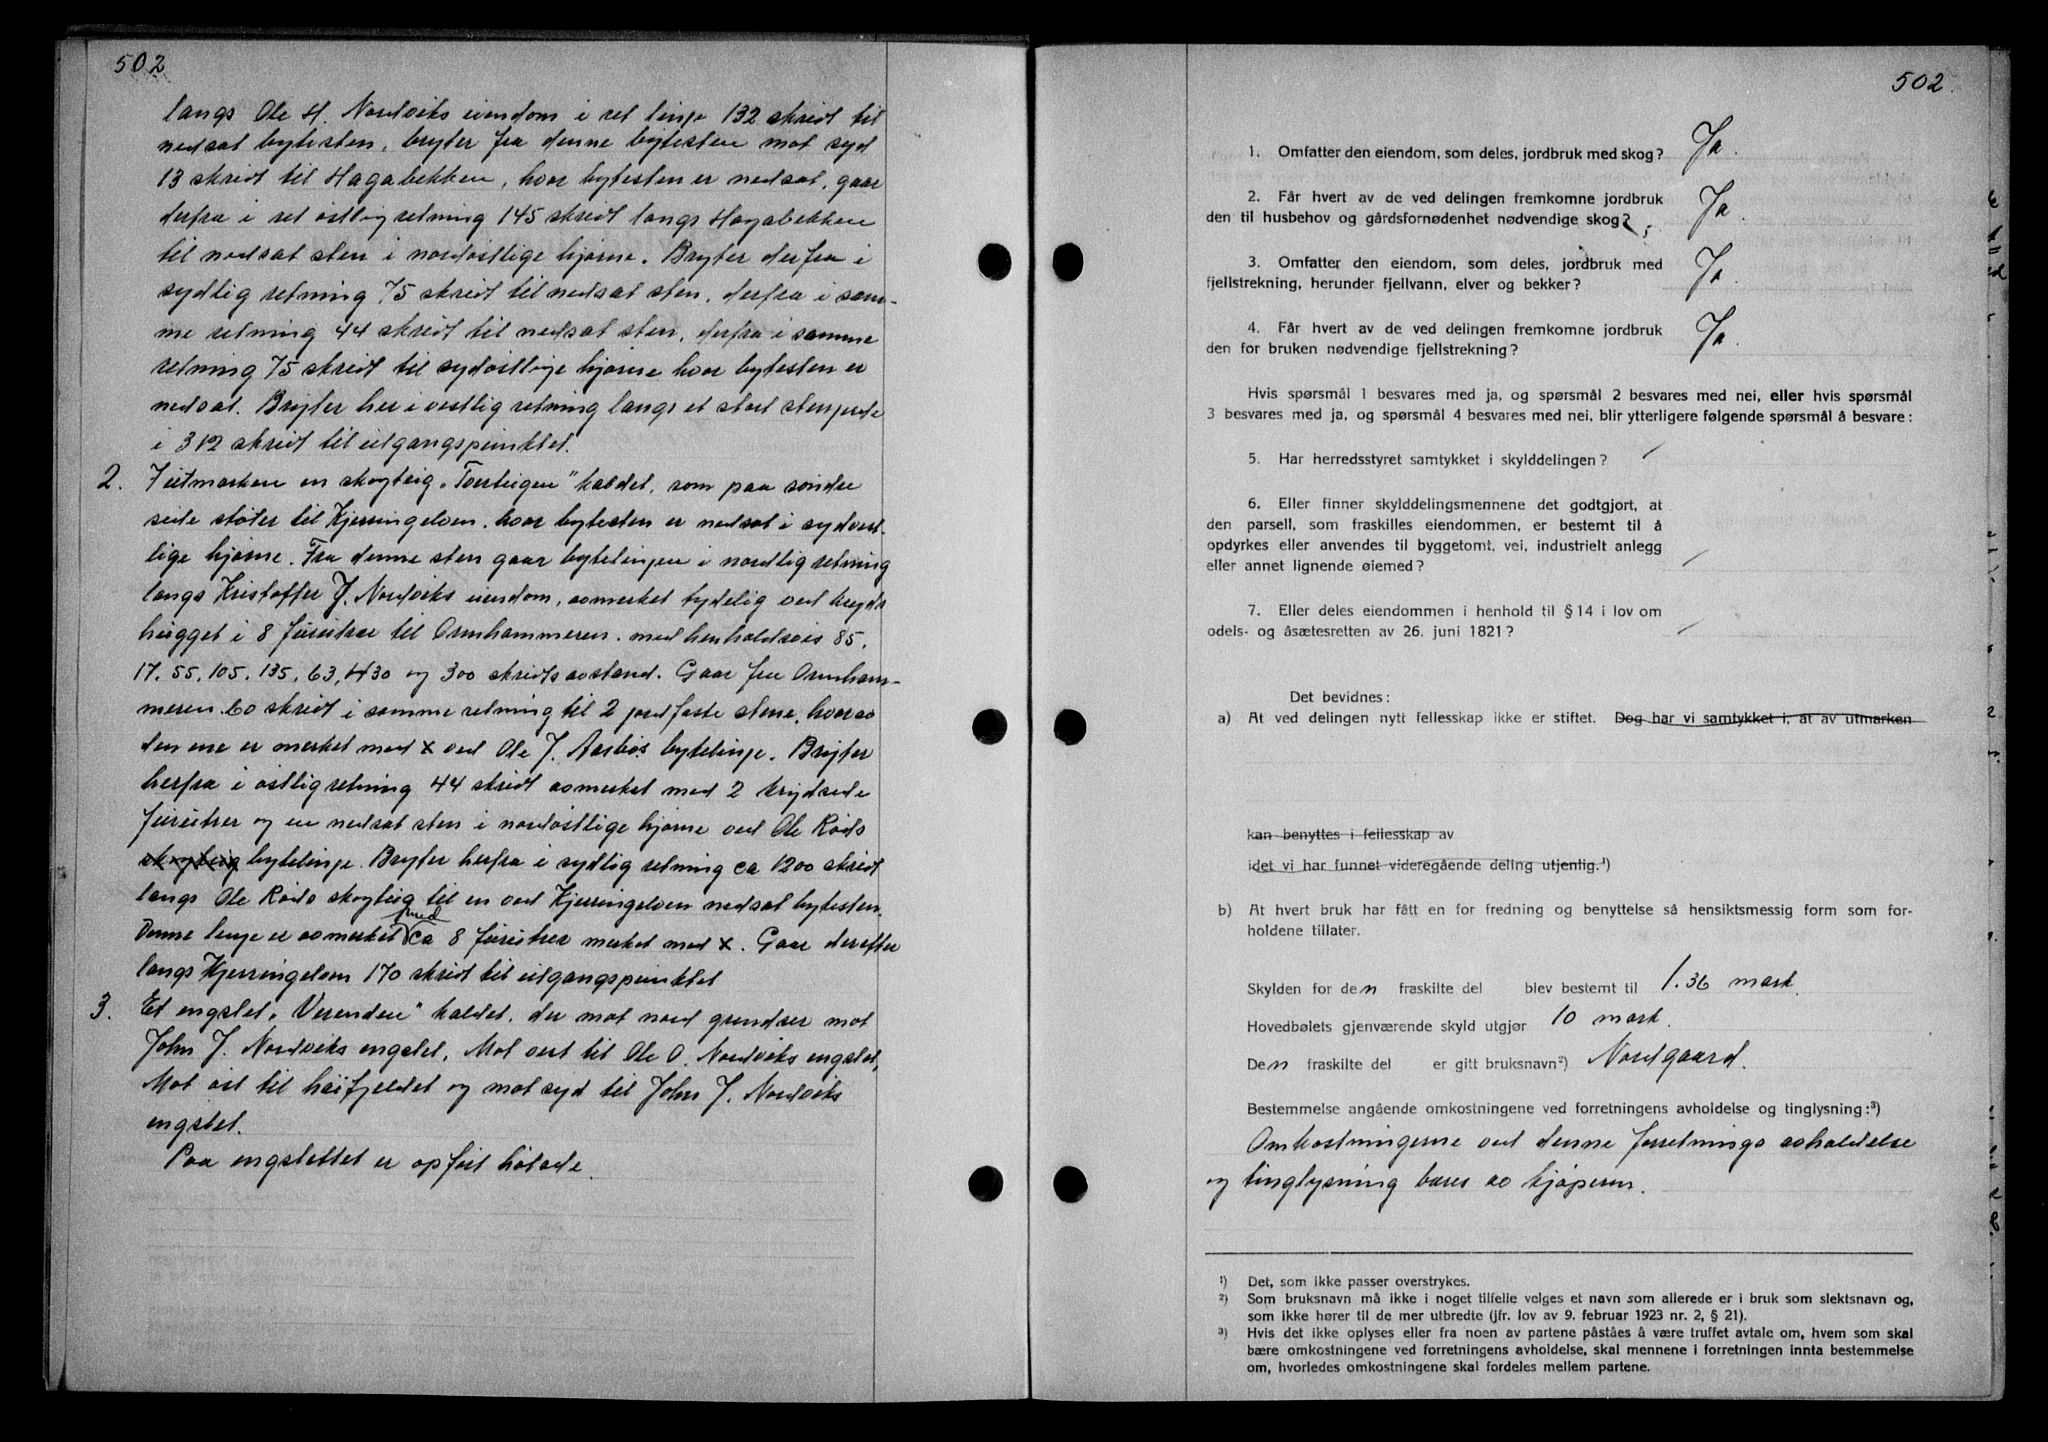 502
langs Ole H. Nordviks eiendom i ret linje 132 skridt til
nedsat bytesten, bryter fra denne bytesten mot syd
13 skridt til Hagabekken, hvor bytesten er nedsat, gaar
derfra i ret østlig retning 145 skridt langs Hagabekken
til nedsat sten i nordøstlige hjørne. Bryter derfra i
sydlig retning 75 skridt til nedsat sten, derfra i sam-
me retning 44 skridt til nedsat sten, derfra i samme
retning 75 skridt til sydøstlige hjørne hvor bytesten er
nedsat. Bryter her i vestlig retning langs et stort stengjerde
i 312 skridt til utgangspunktet.
2. I utmarken en skogteig „Torsteigen" kaldet, som paa søndre
seite støter til Kjerringelven, hvor bytesten er nedsat i sydvest-
lige hjørne. Fra denne sten gaar bytelinjen i nordlig retning
langs Kristoffer J. Nordviks eiendom, avmerket tydelig ved kryds
hugget i 8 furutrær til Ørnhammeren, med henholdsvis 85,
17, 55, 105, 135, 63, 430 og 300 skridts avstand. Gaar fra Ørnham-
meren 60 skridt i samme retning til 2 jordfaste stene, hvorav
den ene er merket med x ved Ole J. Aasbøs bytelinje. Bryter
herfra i østlig retning 44 skridt avmerket med 2 krydsede
furutrær og en nedsat sten i nordøstlige hjørne ved Ole Røds
skogteig bytelinje. Bryter herfra i sydlig retning ca 1200 skridt
langs Ole Røds skogteig til en ved Kjerringelven nedsat bytesten.
Denne linje er avmerket med ca 8 furutrær merket med x. Gaar derefter
langs Kjerringelven 170 skridt til utgangspunktet
3. Et engslet „Verenden" kaldet, der mot nord grendser mot
John J. Nordviks engslet, Mot vest til Ole O. Nordviks engslet,
Mot øst til høifjeldet og mot syd til John J. Nordviks
engslet.
Paa engslettet er opført høløde.
502.
1. Omfatter den eiendom, som deles, jordbruk med skog? Ja.
2. Får hvert av de ved delingen fremkomne jordbruk
den til husbehov og gårdsfornødenhet nødvendige skog? Ja.
3. Omfatter den eiendom, som deles, jordbruk med
fjellstrekning, herunder fjellvann, elver og bekker? Ja.
4. Får hvert av de ved delingen fremkomne jordbruk
den for bruken nødvendige fjellstrekning? Ja.
Hvis spørsmål 1 besvares med ja, og spørsmål 2 besvares med nei, eller hvis spørsmål
3 besvares med ja, og spørsmål 4 besvares med nei, blir ytterligere følgende spørsmål å besvare:
5. Har herredsstyret samtykket i skylddelingen? /
6. Eller finner skylddelingsmennene det godtgjort, at
den parsell, som fraskilles eiendommen, er bestemt til å
opdyrkes eller anvendes til byggetomt, vei, industrielt anlegg
eller annet lignende øiemed? /
7. Eller deles eiendommen i henhold til § 14 i lov om
odels- og åsætesretten av 26. juni 1821? /
Det bevidnes:
a) At ved delingen nytt fellesskap ikke er stiftet. Dog har vi samtykket i, at av utmarken
kan benyttes i fellesskap av
idet vi har funnet videregående deling utjenlig.¹)
b) At hvert bruk har fått en for fredning og benyttelse så hensiktsmessig form som for-
holdene tillater.
Skylden for den fraskilte del blev bestemt til 1.36 mark.
Hovedbølets gjenværende skyld utgjør 10 mark.
Den fraskilte del er gitt bruksnavn²) Nordgaard.
Bestemmelse angående omkostningene ved forretningens avholdelse og tinglysning:³)
Omkostningerne ved denne forretnings avholdelse
og tinglysning bæres av kjøperen.
¹) Det, som ikke passer overstrykes.
²) Som bruksnavn må ikke i noget tilfelle velges et navn som allerede er i bruk som slektsnavn og,
som ikke hører til de mer utbredte (jfr. lov av 9. februar 1923 nr. 2, § 21).
³) Hvis det ikke oplyses eller fra noen av partene påståes å være truffet avtale om, hvem som skal
bære omkostningene ved forretningens avholdelse, skal mennene i forretningen innta bestemmelse
om, hvorledes omkostningene skal fordeles mellem partene.